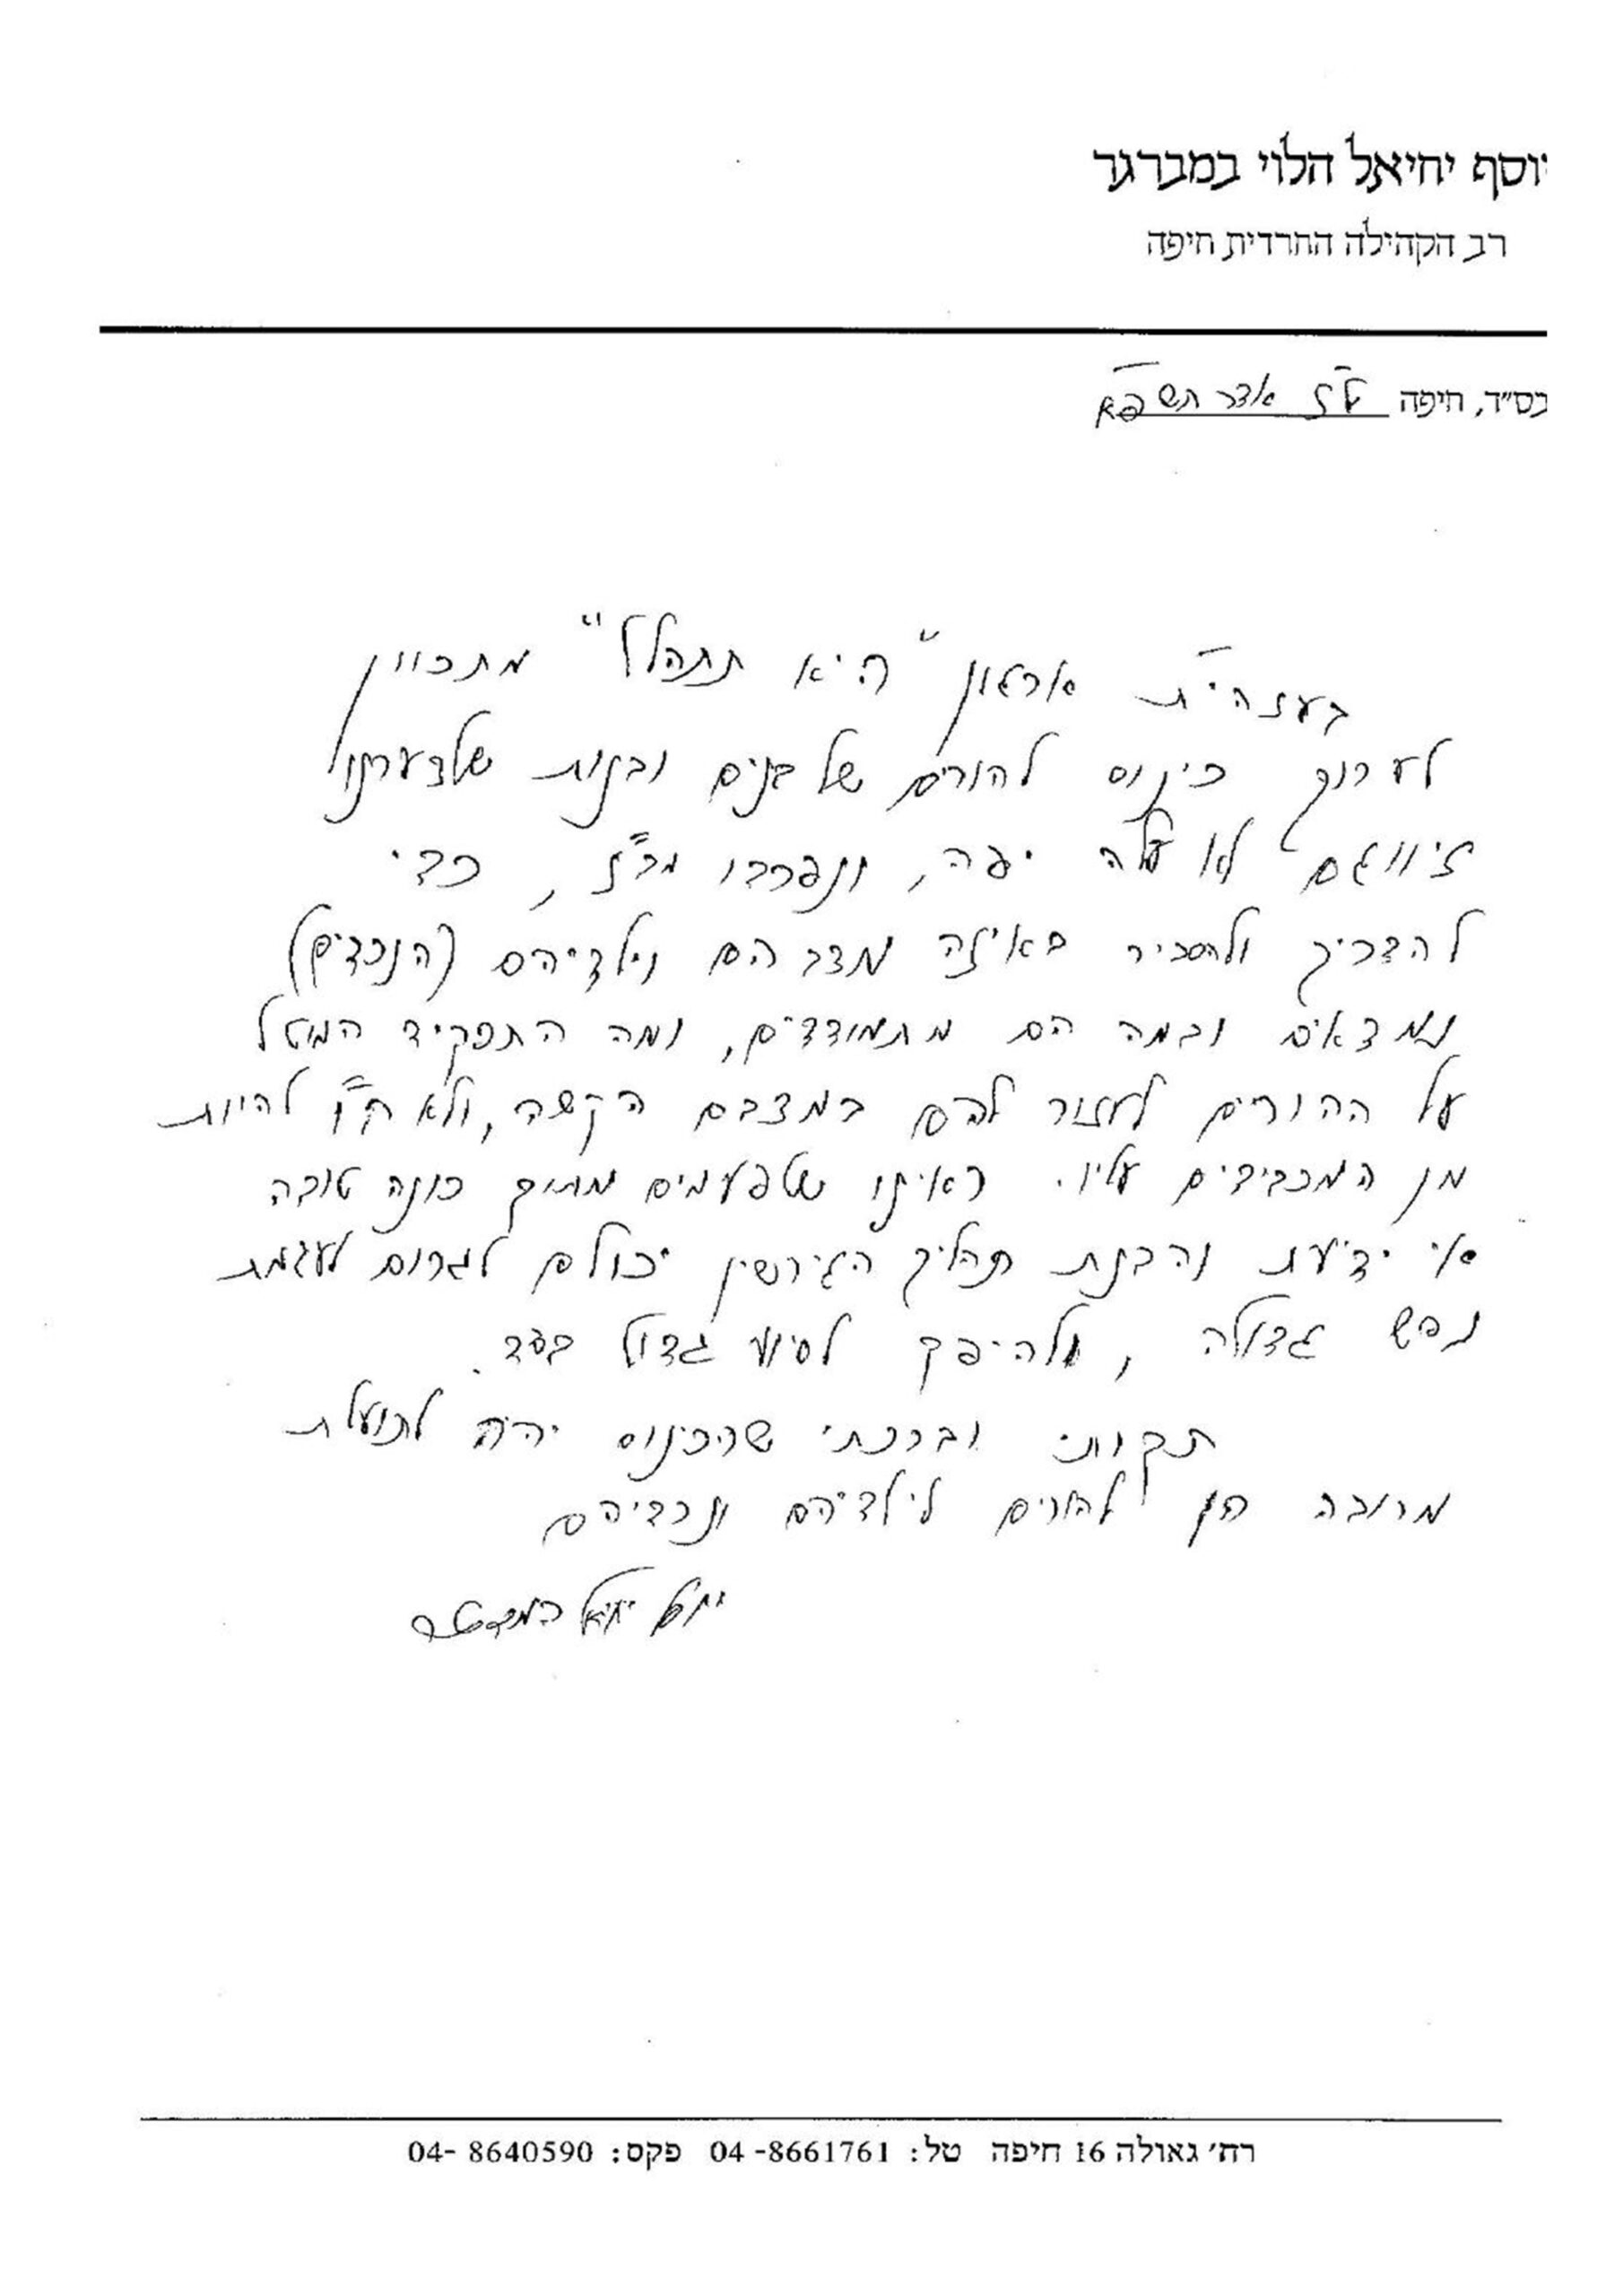 יוסף יחיאל הלוי במברגר
רב הקהילה החרדית חיפה
בס"ד, חיפה ט"ז אדר תשפ"א
בעזהי"ת ארגון "היא תתהלל" מתכוין
לערוך כינוס להורים של בנים ובנות שלצערנו
זיווגם לא עלה יפה, ונפרדו מב"ז, כדי
להדריך ולהסביר באיזה מצב הם וילדיהם (הנכדים)
נמצאים ובמה הם מתמודדים, ומה התפקיד המוטל
על ההורים לעזור להם במצבם הקשה, ולא ח"ו להיות
מן המכבידים עליו. ראינו שלפעמים מתוך כונה טובה
אי ידיעת והבנת תהליך הגירושין יכולים לגרום לעגמת
נפש גדולה, ולהיפך לסיוע גדול בסד.
תקותי וברכתי שהכינוס יהיה לתועלת
מרובה הן להורים לילדיהם ונכדיהם
יוסף יחיאל במברגר
רח' גאולה 16 חיפה טל: 04-8661761 פקס: 04-8640590